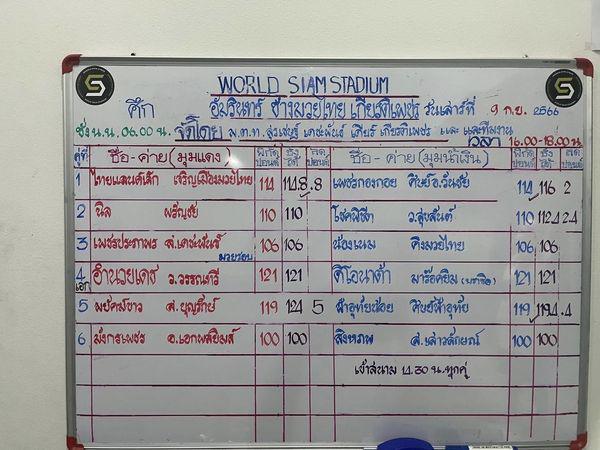 WORLD SIAM STADIUM
ศึก อัมรินทร์ ช้างมวยไทย เกียรติเพชร วันเสาร์ที่ 9 ก.ย. 2566
ชั่ง น.น. 06.00 น. จัดโดย พ.ต.ท. สุรเชษฐ์ เดชพันธ์ เสียรี่ เกียรติเพชร และ และทีมงาน
เวลา 16.00-18.00 น.
คู่ที่ ชื่อ-ค่าย (มุมแดง) พิกัดปอนด์ ชั่งได้ ลดปอนด์ ชื่อ-ค่าย (มุมน้ำเงิน) พิกัดปอนด์ ชั่งได้ ลดปอนด์
1 ไทยแลนด์เล็ก เจริญเมืองมวยไทย 114 114.8 .8 เพชรกองกอย ศิษย์อ.วันชัย 114 116 2
2 นิล ผรัญชัย 110 110 โชคพิชิต ว.สุขสันต์ 110 112.4 2.4
3 เพชรประภาพร ส.เดชพันธ์ 106 106 น้องเนม คิงมวยไทย 106 106
มวยรอบ
4 เอก อำนวยเดช ว.วรรณทวี 121 121 ลีโอนาด้า มาร็อคยิม 121 121
5 มยัคฆ์ขาว ส.บุญรักษ์ 119 124 5 ฟ้าอุทัยน้อย ศิษย์ฟ้าอุทัย 119 119.4 .4
6 มังกรเพชร อ.เอกพลยิมส์ 100 100 สิงหภพ ส.เสาวลักษณ์ 100 100
เข้าสนาม 14.30 น. ทุกคู่